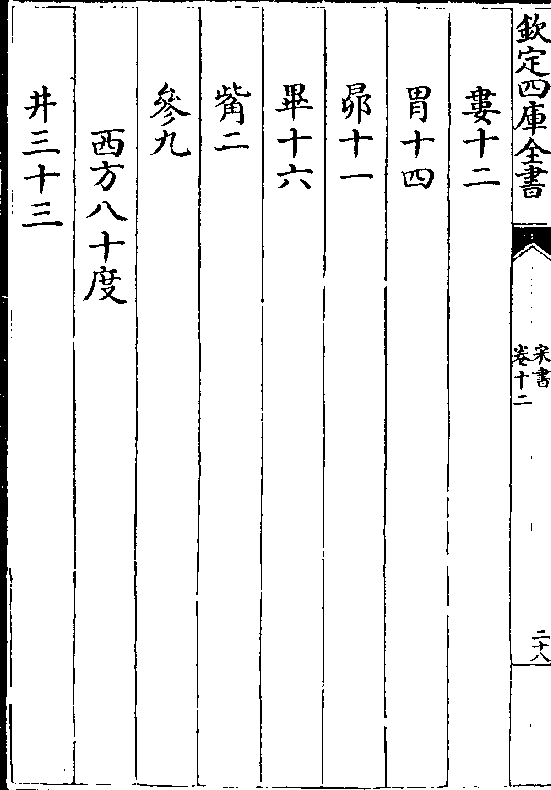 欽定四庫全書
宋書
卷十二
二十八
婁十二
胃十四
昴十一
畢十六
觜二
參九
西方八十度
井三十三